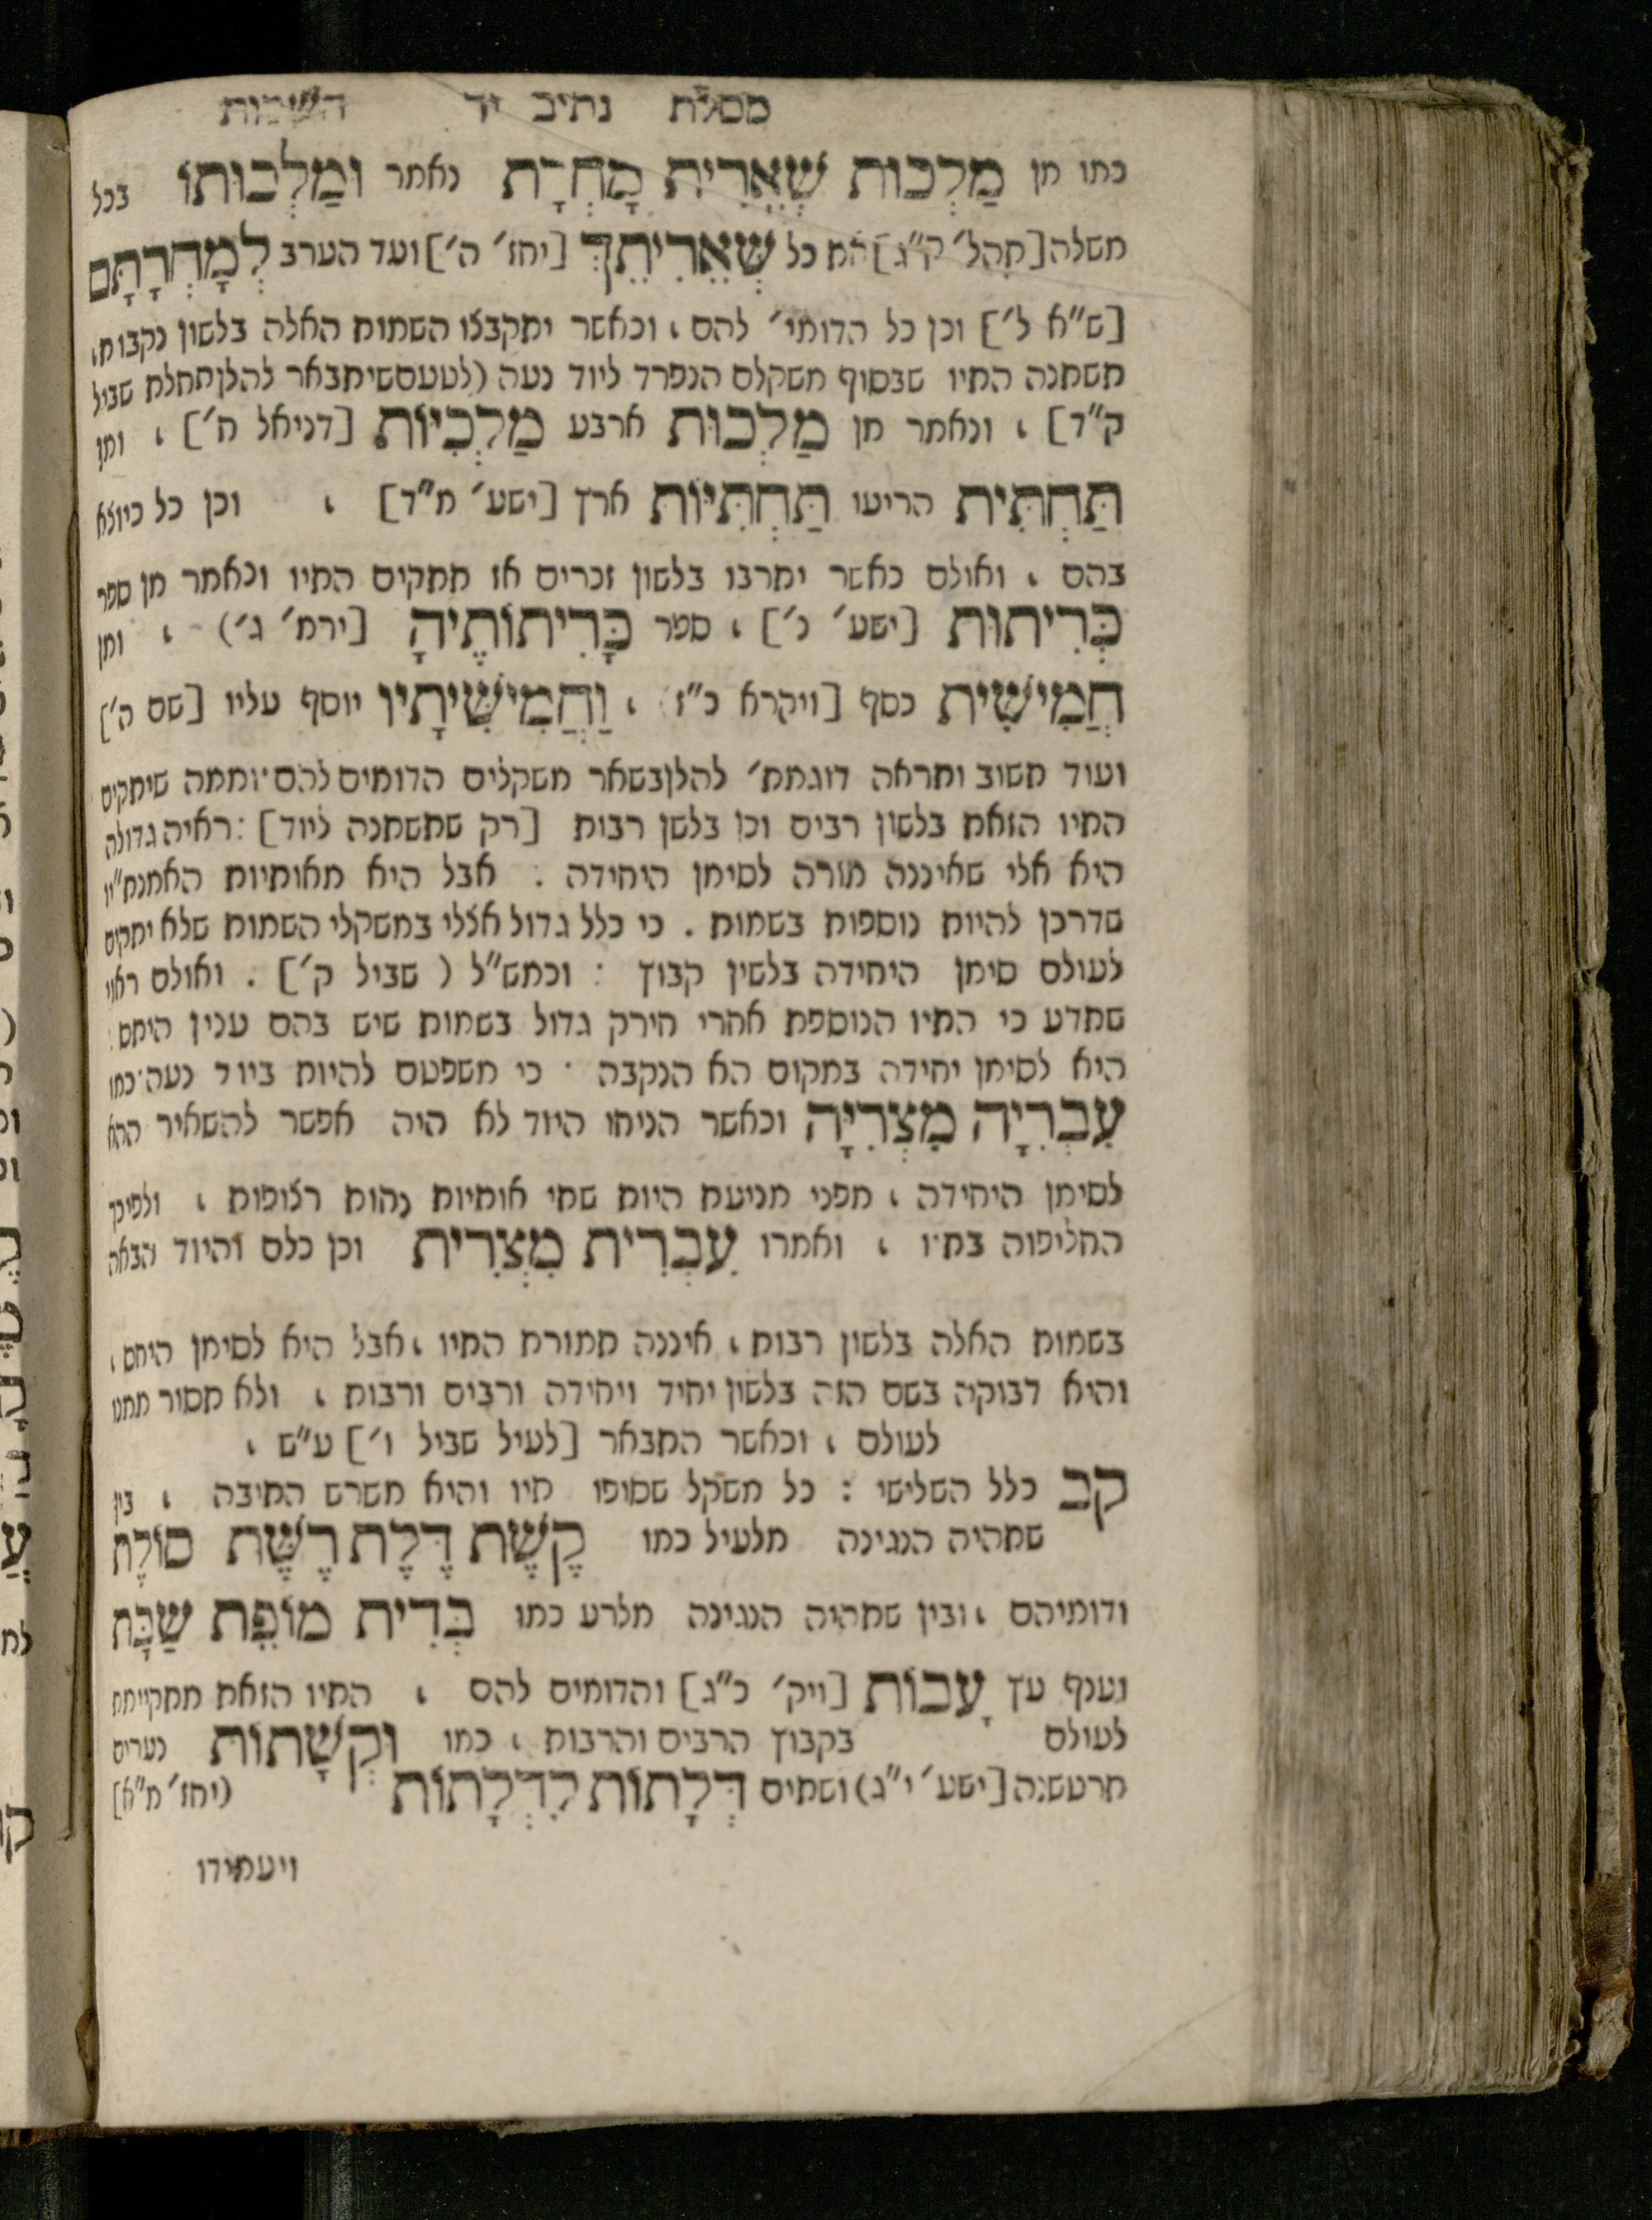 מסלת נתיב יד השמות
כמו מן מַלְכוּת שְׁאֵרִית מָחְרָת נאמר ומַלְכוּתו בכל
משלה [תהל׳ ק״ג] את כל שְׁאֵרִיתֵךְ [יחז׳ ה׳] ועד הערב לְמָחְרָתָם
[ש״א ל׳] וכן כל הדומי׳ להם, וכאשר יתקבצו השמות האלה בלשון נקבות,
תשתנה התיו שבסוף משקלם הנפרד ליוד נעה (לטעם שיתבאר להלן תחלת שביל
ק״ד], ונאמר מן מַלְכוּת ארבע מַלְכִיוֹת [דניאל ח׳], ומן
תַּחְתִּית הריעו תַּחְתִּיּוֹת ארץ [ישע׳ מ״ד], וכן כל כיוצא
בהם, ואולם כאשר יתרבו בלשון זכרים אז תתקים התיו ונאמר מן ספר
כְּרִיתוּת [ישע׳ נ׳], ספר כְּרִיתוֹתֶיהָ [ירמ׳ ג׳), ומן
חֲמִישִׁית כסף [ויקרא כ״ז), וַחֲמִישִׁיתָיו יוסף עליו [שם ה׳]
ועוד תשוב ותראה דוגמת׳ להלן בשאר משקלים הדומים להם: וממה שיתקים
התיו הזאת בלשון רבים וכו בלשן רבות [רק שתשתנה ליוד]: ראיה גדולה
היא אלי שאיננה מורה לסימן היחידה: אבל היא מאותיות האמנת״יו
שדרכן להיות נוספות בשמות. כי כלל גדול אצלי במשקלי השמות שלא יתקים
לעולם סימן היחידה בלשין קבוץ: וכמש״ל (שביל ק׳]. ואולם ראוי
שתדע כי התיו הנוספת אחרי חירק גדול בשמות שיש בהם ענין היחס:
היא לסימן יחידה במקום הא הנקבה · כי משפטם להיות ביוד נעה· כמו
עִבְרִיָה מִצְרִיָּה וכאשר הניחו היוד לא היה אפשר להשאיר ההא
לסימן היחידה, מפני מניעת היות שתי אותיות נחות רצופות, ולפיכך
החליפוה בתיו, ואמרו עִבְרִית מִצְרִית וכן כלם והיוד הבאה
בשמות האלה בלשון רבות, איננה תמורת התיו, אבל היא לסימן היחס,
והיא דבוקה בשם הזה בלשון יחיד ויחידה ורבים ורבות, ולא תסור ממנו
לעולם, וכאשר התבאר [לעיל שביל ו׳] ע״ש,
קב כלל השלישי: כל משקל שסופו תיו והיא משרש התיבה, בין
שתהיה הנגינה מלעיל כמו קֶשֶׁת דֶּלֶת רֶשֶׁת סוֹלֶת
ודומיהם, ובין שתהיה הנגינה מלרע כמו בְּרִית מוֹפֵת שַׁבָּת
וענף עץ עָבוֹת [ויק׳ כ״ג] והדומים להם, התיו הזאת מתקיימת
לעולם בקבוץ הרבים והרבות, כמו וּקְשָׁתוֹת נערים
תרטשנה [ישע׳ י״ג) ושתים דְּלָתוֹת לִדְלָתוֹת (יחז׳ מ״א]
ויעמידו